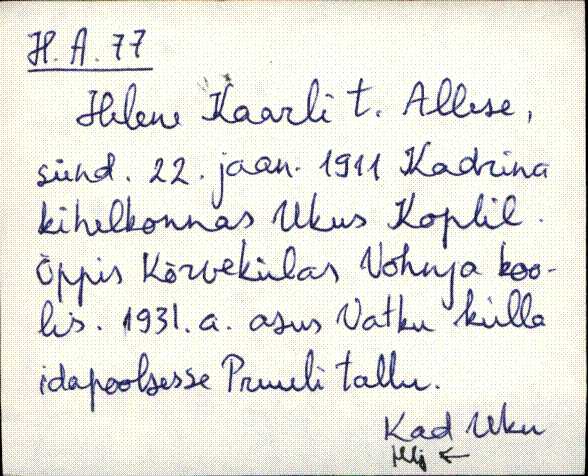 H. A. 77
Helene Kaarli t. Allese,
sünd. 22. jaan. 1911 Kadrina
kihelkonnas Ukus Koplil.
Õppis Kõrvekülas Vohnja koo-
lis. 1931. a. asus Vatku külla
idapoolsesse Pruuli tallu.
Kad Uku
Hlj ←